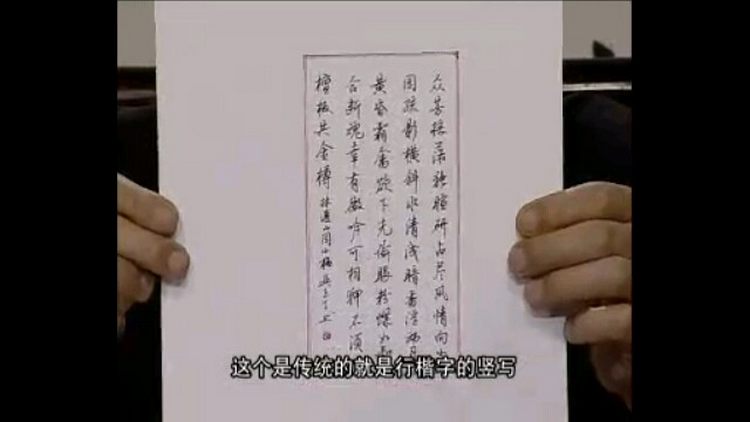 众芳摇落独暄妍占尽风情向小
园疏影横斜水清浅暗香浮动月
黄昏霜禽欲下先偷眼粉蝶如知
合断魂幸有微吟可相狎不须
檀板共金樽 林逋山园小梅
这个是传统的就是行楷字的竖写